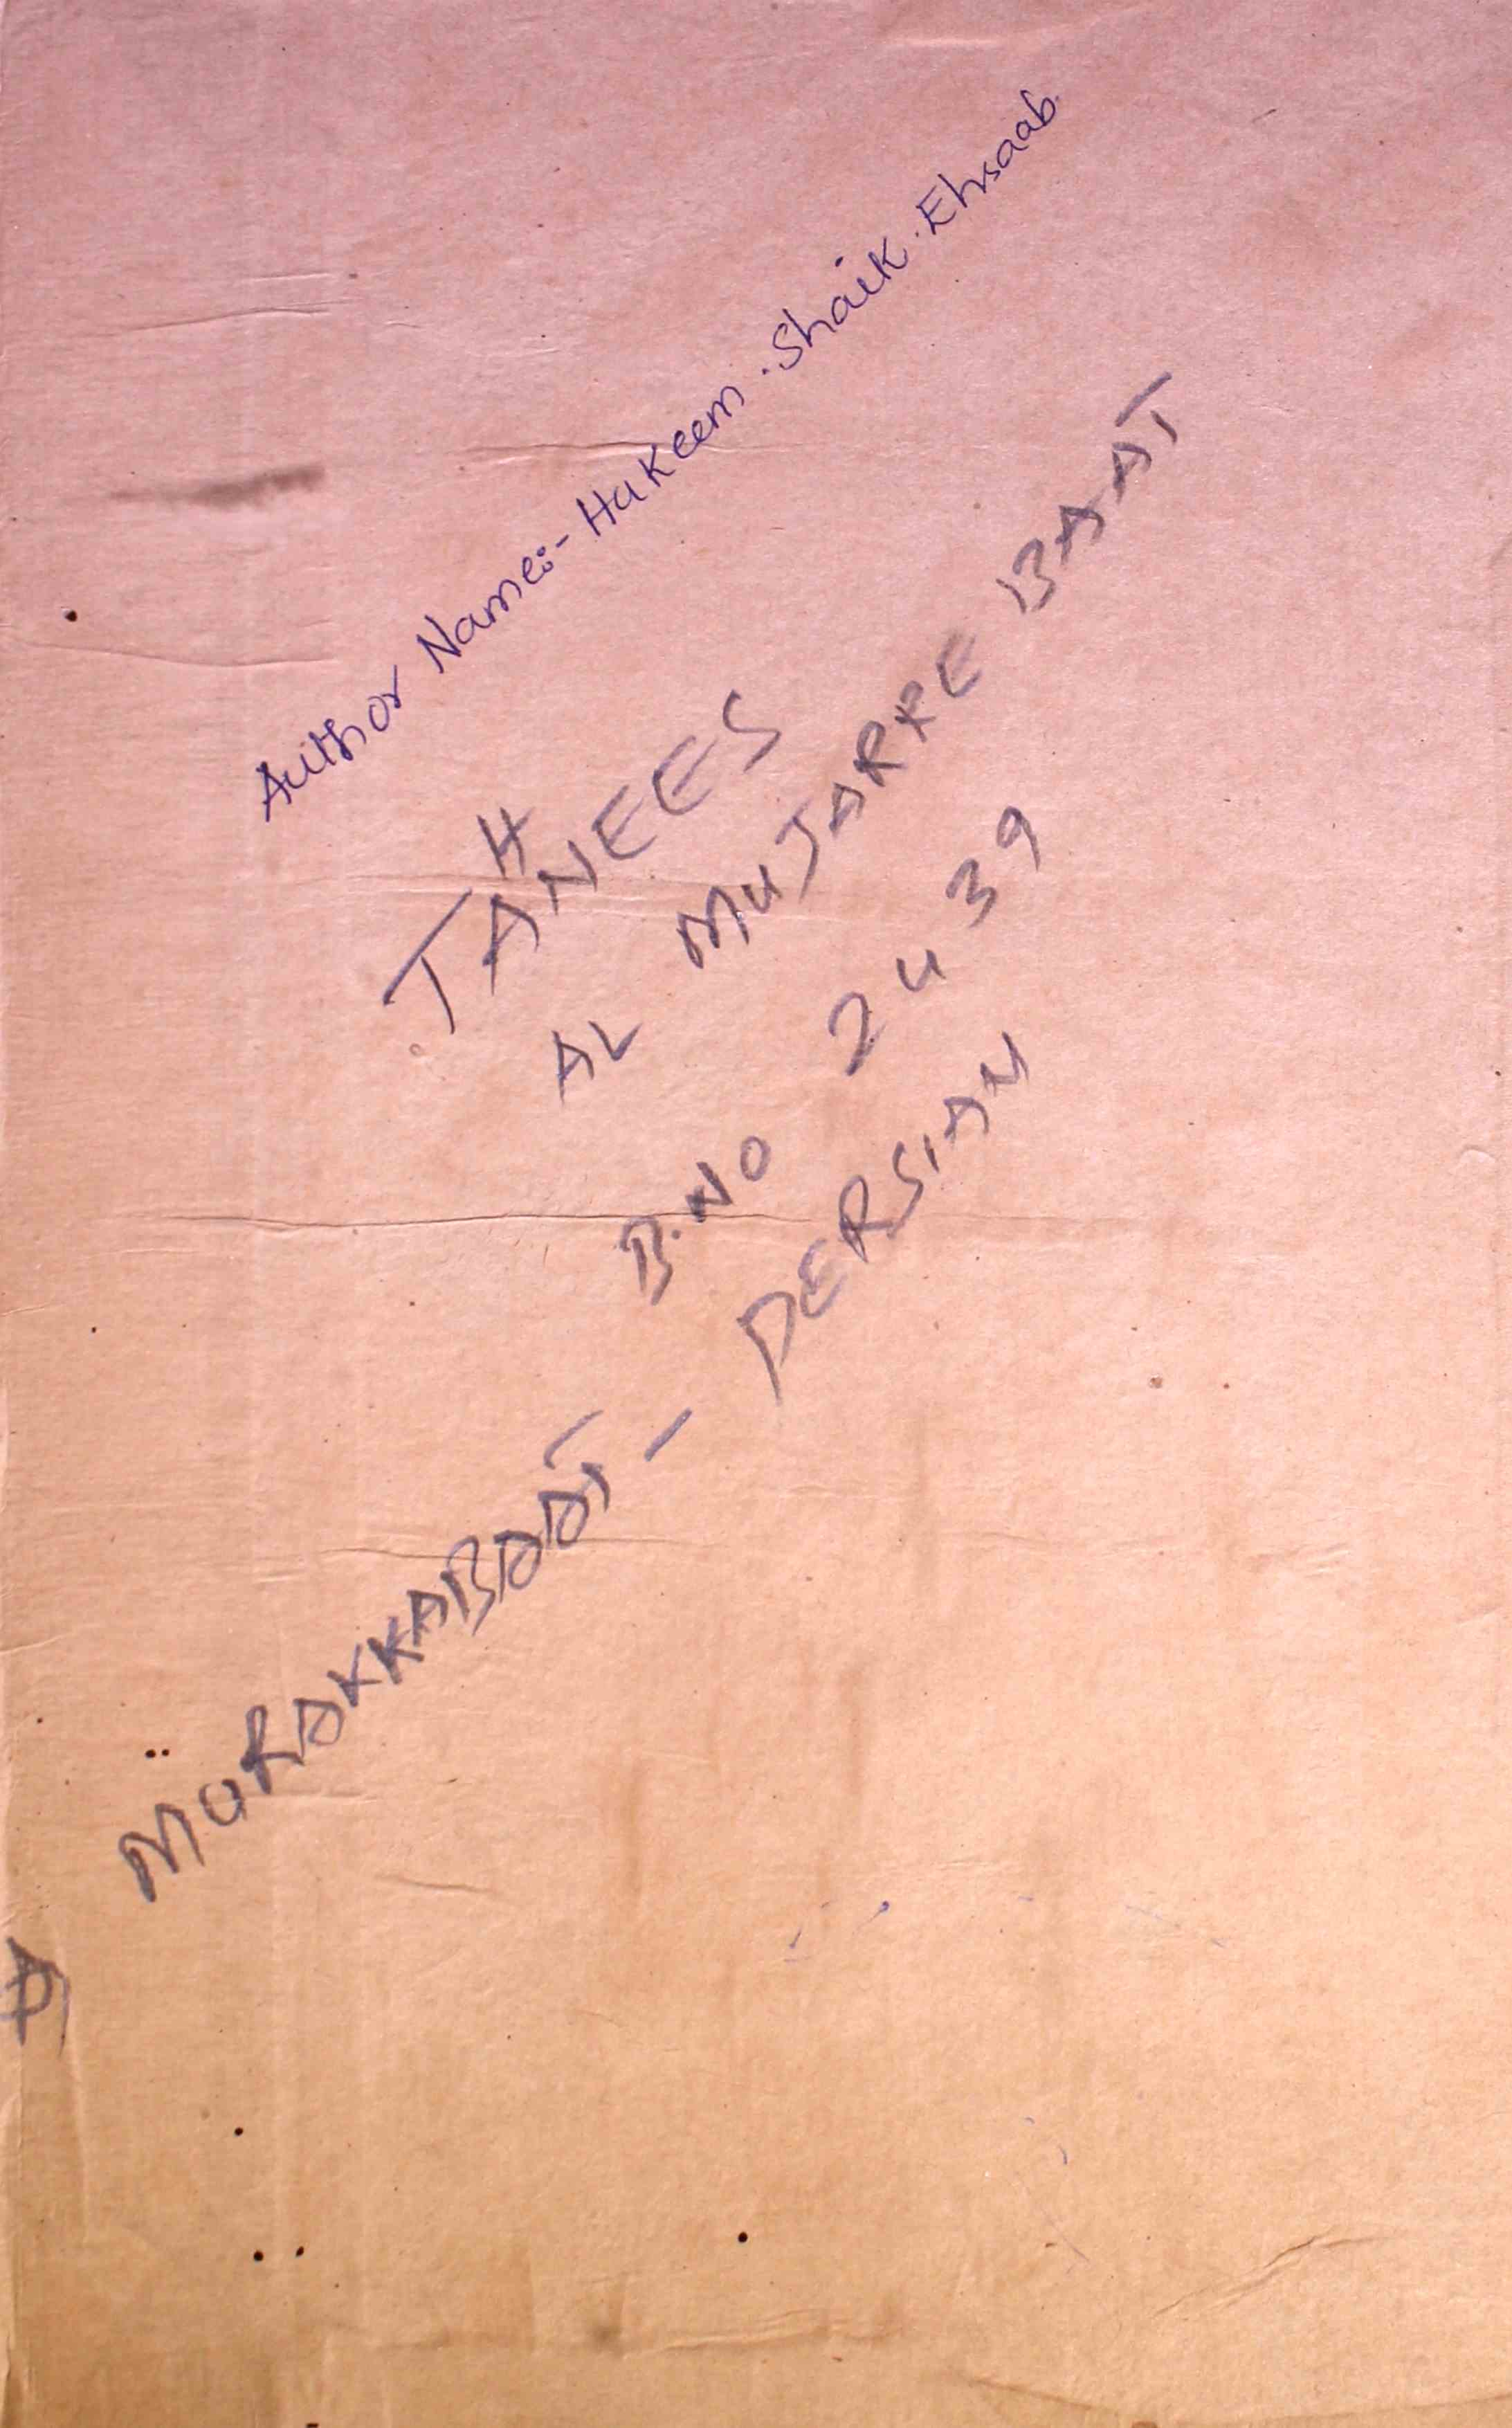 Author Name:- Hakeem. Shaik. Ehsaab.
TAHNEES
AL MUJARRE BAAT
B.NO 2439
MURAKKABAAT - PERSIAN
A